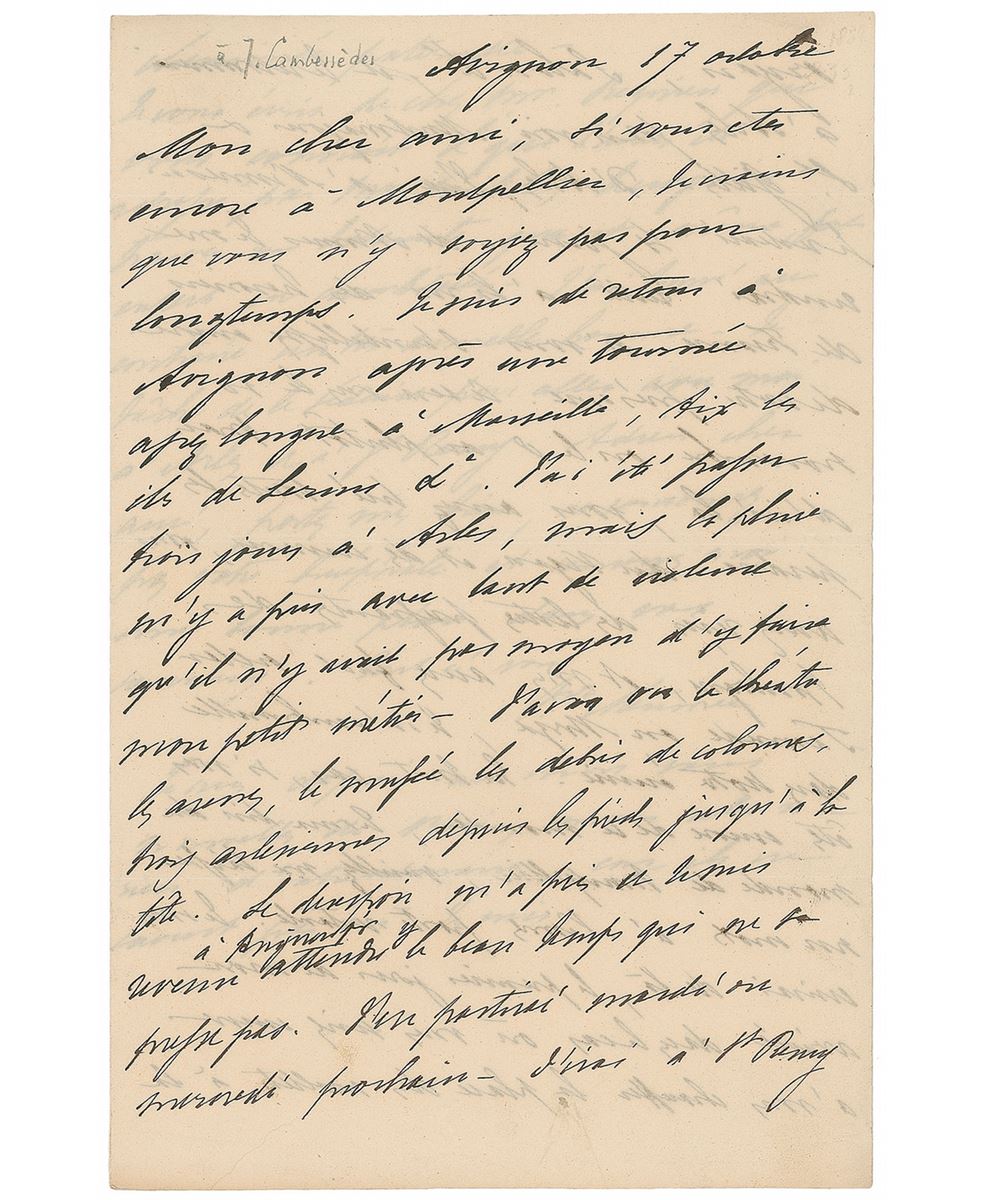 à J. Cambessèdes
Avignon 17 octobre
Mon cher ami, si vous etes
encore à Montpellier, je crains
que vous n'y soyiez pas pour
longtemps. Je suis de retour à
Avignon après une tournée
assez longue à Marseille, Aix les
iles de Lerins &ª. J'ai été passer
trois jours à Arles, mais la pluie
m'y a pris avec tant de violence
qu'il n'y avait pas moyen d'y faire
mon petit métier — J'avais vu le théatre
les arenes, le musée les debris de colonnes,
trois arlesiennes depuis les pieds jusqu'à la
tête. Le desespoir m'a pris et je suis
revenu à Avignon pr y attendre le beau temps qui ne se
presse pas. J'en partirai mardi ou
mercredi prochain — J'irai à St Remy